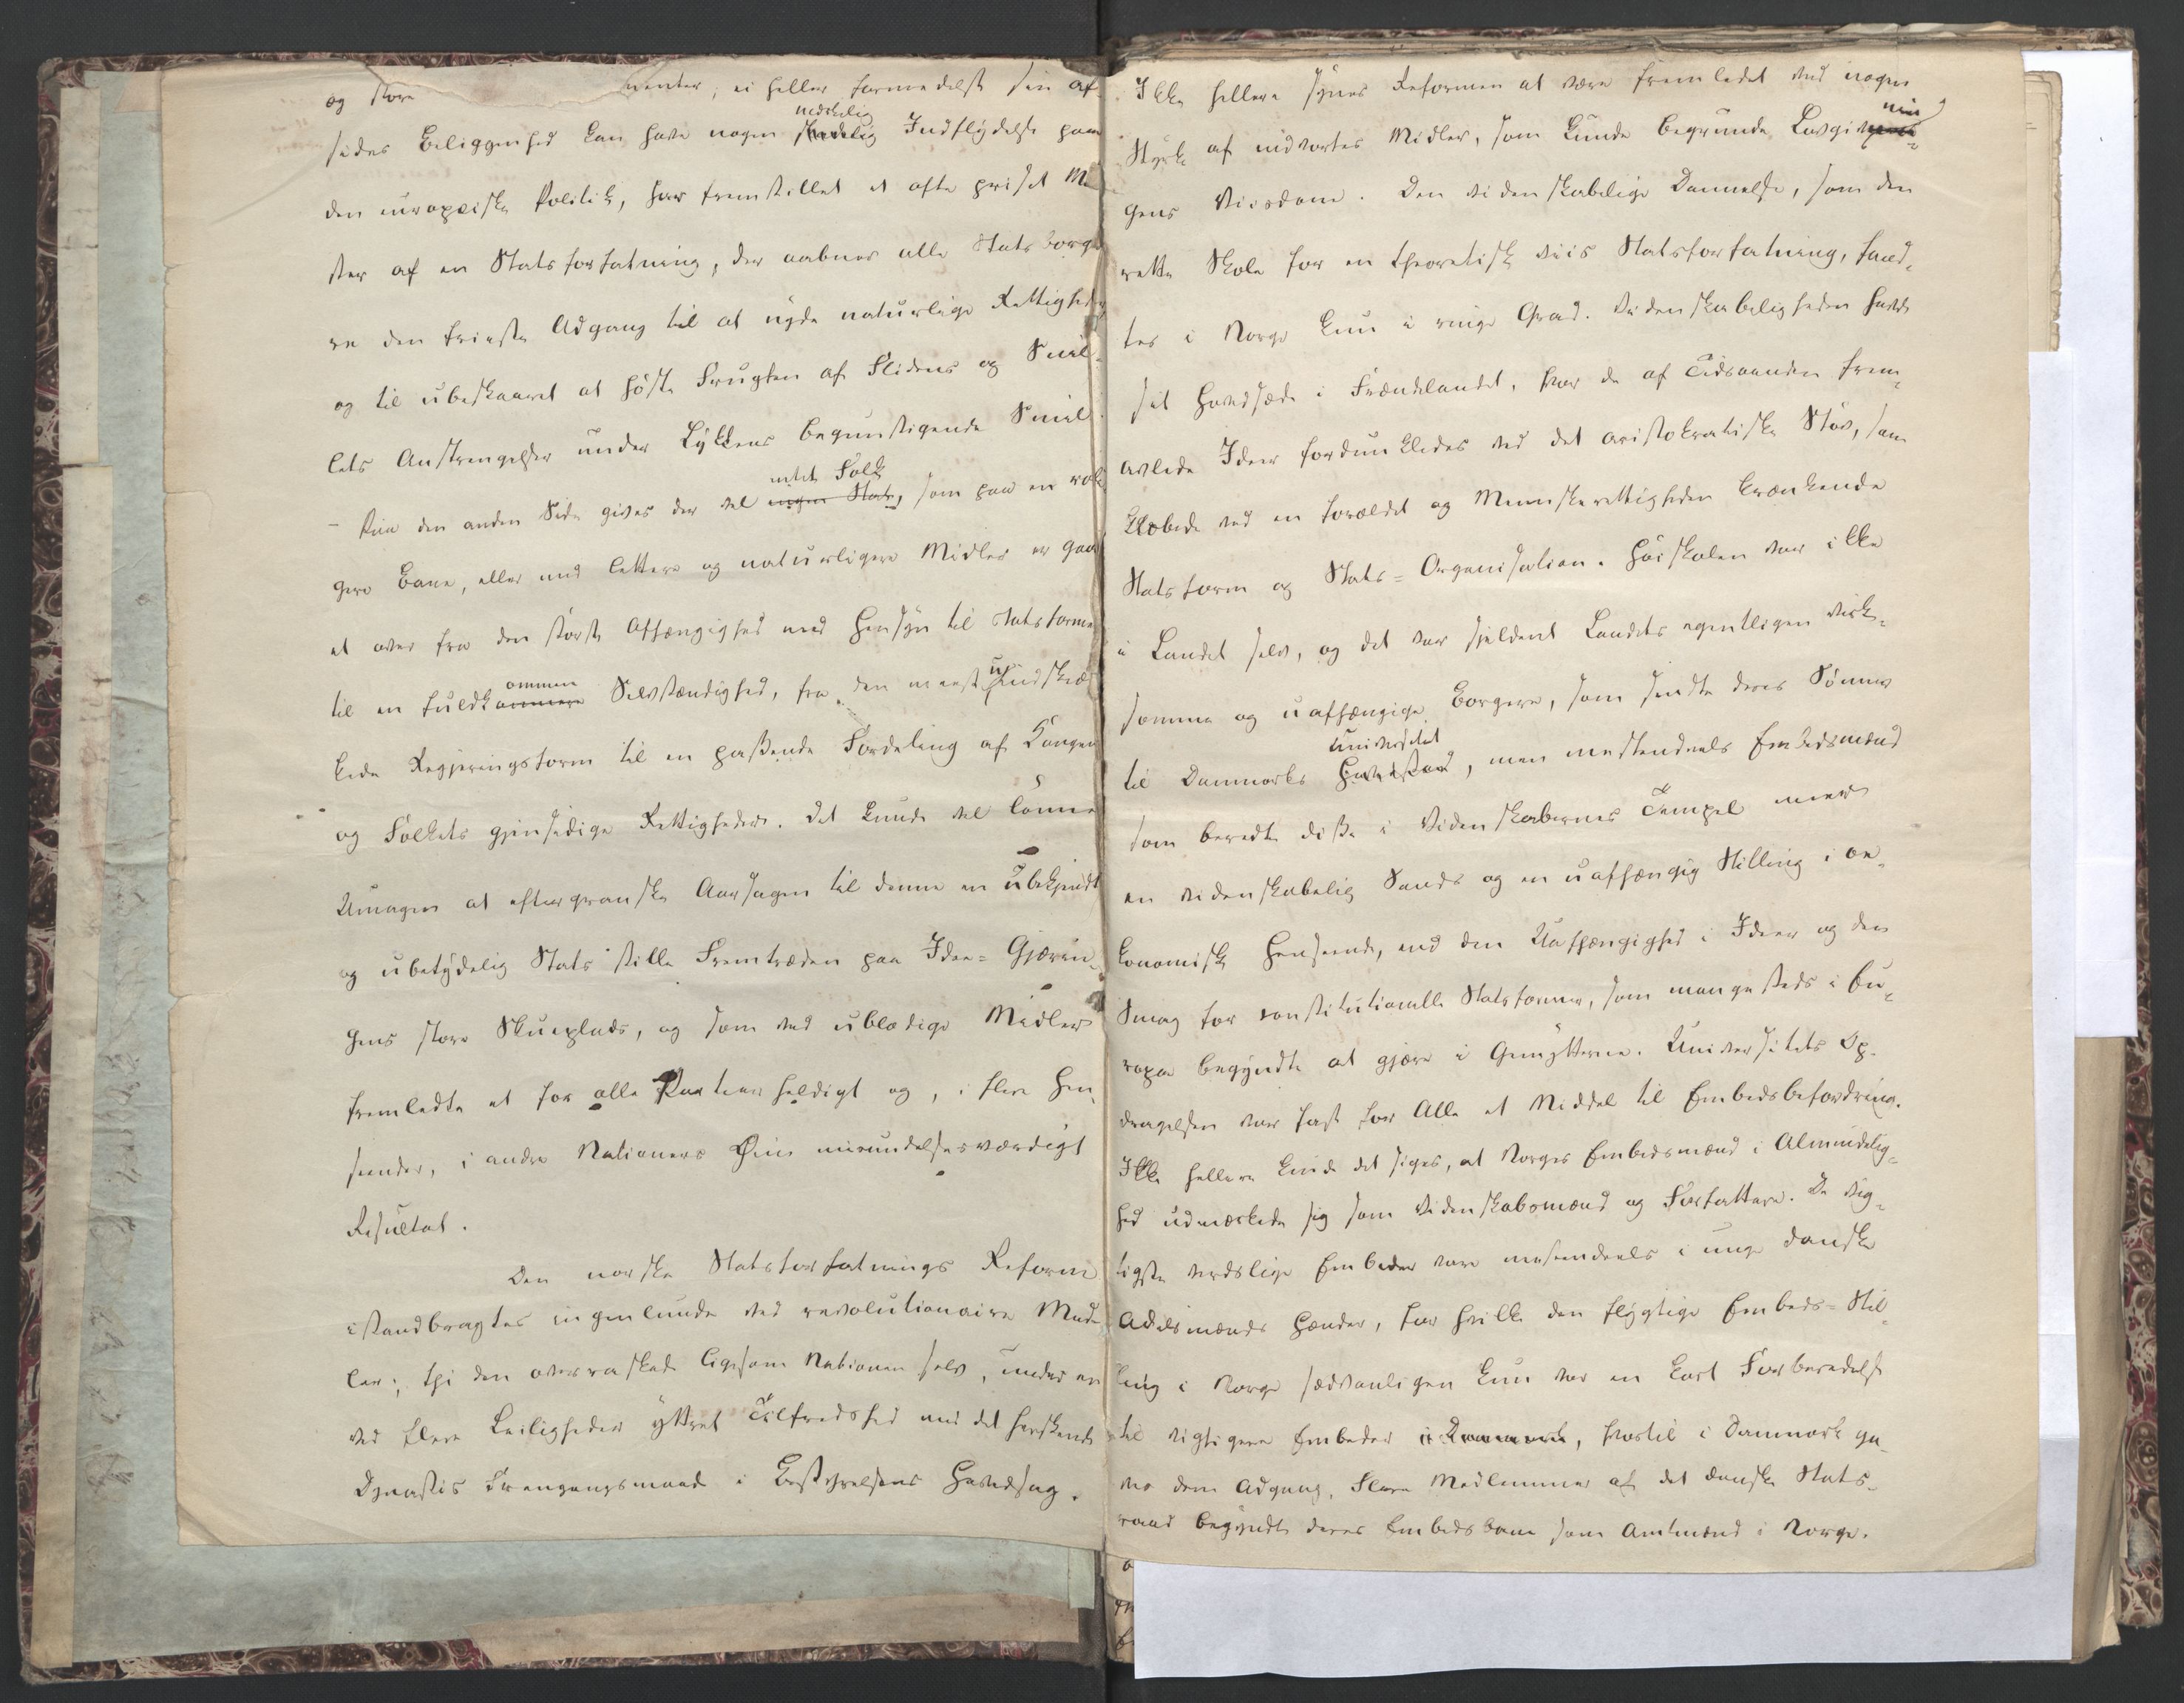 og store nenter, ei heller formedelst sin af-
sides Beliggenhed kan have nogen mærkelig Indflydelse paa
den europæiske Politik, har fremstillet et ofte priset Mø
ster af en Statsforfatning, der aabner alle Statsborge
re den frieste Adgang til at nyde naturlige Rettigheder
og til ubeskaaret at høste Frugten af Flidens og Snil-
lets Anstrengelser under Lykkens begunstigende Smil.
- Paa den anden Side gives der vel intet Folk ingen Stat, som paa en roli
gere Bane, eller med lettere og naturligere Midler er gaa
et over fra den største Afhængighed med Hensyn til Statsformen
til en fuldkommen Selvstændighed, fra den meest uindskræn
kede Regjeringsform til en passende Fordeling af Kongens
og Folkets gjensidige Rettigheder. Det kunde vel lønne
Umagen at eftergranske Aarsagen til denne en ubekjendt
og ubetydelig Stats stille Fremtræden paa Idee-Gjærin-
gens store Skueplads, og som ved ublodige Midler
fremledte et for alle Parter heldigt og, i flere Hen-
seender, i andre Nationers Øine misundelsesværdigt
Resultat.
Den norske Statsforfatnings Reform
istandbragtes ingenlunde ved revolutionaire Mid
ler; thi den overraskede ligesom Nationen selv, under en
ved flere Leiligheder yttret Tilfredshed med det herskende
Dynasties Fremgangsmaade i Bestyrelsens Hovedsag.
Ikke hellere synes Reformen at være fremledet ved nogen
Styrke af indvortes Midler, som kunde begrunde Lovgivnin-
gens Viisdom. Den videnskabelige Dannelse, som den
rette Skole for en theoretisk viis Statsforfatning, fand-
tes i Norge kun i ringe Grad. Videnskabeligheden havde
sit Hovedsæde i Frændelandet, hvor de af Tidsaanden frem-
avlede Ideer fordunkledes ved det aristokratiske Støv, som
klæbede ved en forældet og Menneskerettigheden krænkende
Statsform og Stats-Organisation. Høiskolen var ikke
i Landet selv, og det var sjeldent Landets egentligen virk-
somme og uafhængige Borgere, som sendte deres Sønner
til Danmarks Universitet, men mestendeels Embedsmænd
som beredte disse i Videnskabernes Tempel mere
en videnskabelig Sands og en uafhængig Stilling i oe-
konomisk Henseende, end den Uafhængighed i Ideer og den
Smag for constitutionelle Statsformer, som mangesteds i Eu-
ropa begyndte at gjære i Gemytterne. Universitets Op-
dragelsen var fast for Alle et Middel til Embedsbefordring.
Ikke hellere kunde det siges, at Norges Embedsmænd i Almindelig-
hed udmærkede sig som Videnskabsmænd og Forfattere. De vig-
tigste verdslige Embeder vare mestendeels i unge danske
Adelsmænds Hænder, for hvilke den flygtige Embeds-Stil-
ling i Norge sædvanligen kun var en kort Forberedelse
til vigtigere Embeder i Danmark, hvortil i Danmark ga-
ves dem Adgang. Flere Medlemmer af det danske Stats-
raad begyndte deres Embedsbane som Amtmænd i Norge.